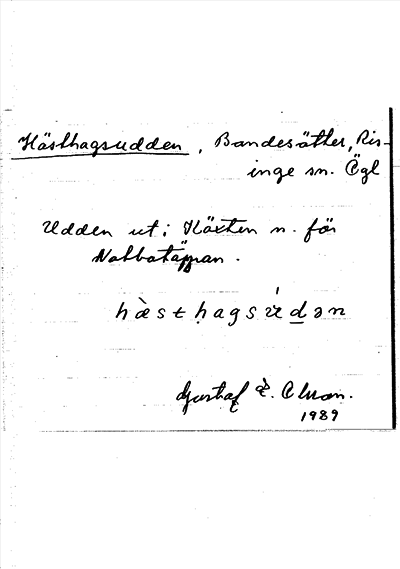 Hästhagsudden, Bandesätter, Ris-
inge sn. Ögl
Udden ut i Häxten n. för
Notbotäppan.
hæ̀st ḥagsu̇́dən
Gustaf E.
1989